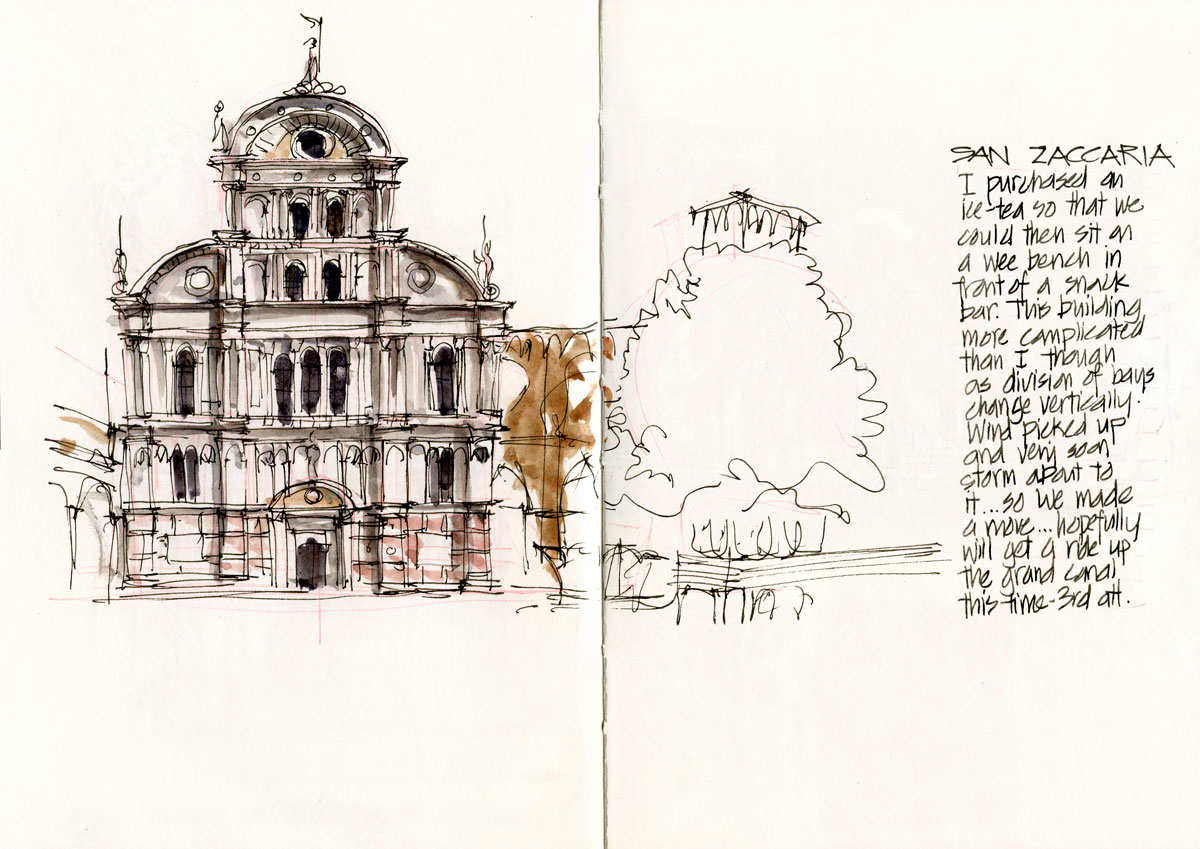 SAN ZACCARIA
I purchased an
ice-tea so that we
could then sit on
a wee bench in
front of a snack
bar. This building
more complicated
than I though
as division of bays
change vertically.
Wind picked up
and very soon
storm about to
it...so we made
a move...hopefully
will get a ride up
the grand canal
this time-3rd att.